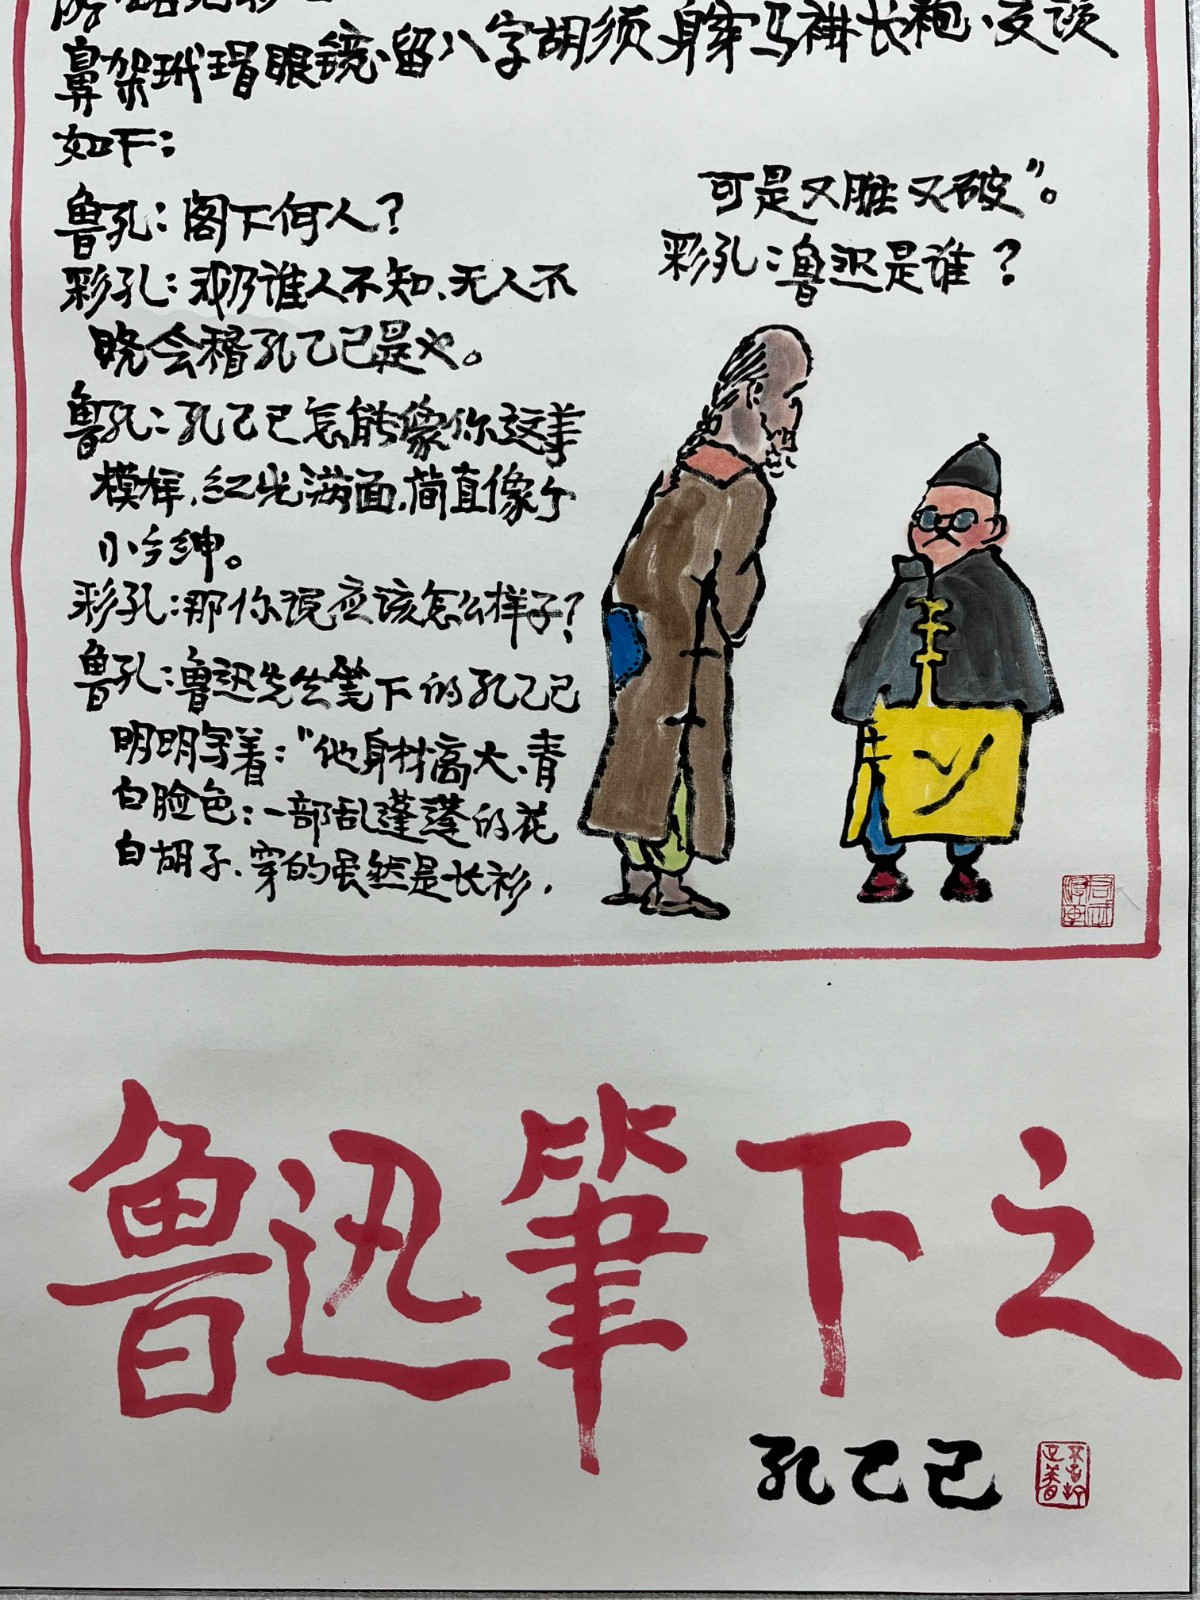 鼻架玳瑁眼镜、留八字胡须、身穿马褂长袍、交谈
如下：
鲁孔：阁下何人？
彩孔：我乃谁人不知、无人不
晓会稽孔乙己是也。
鲁孔：孔乙己怎能像你这羊
模样，红光满面，简直像个
小乡绅。
彩孔：那你说应该怎么样子？
鲁孔：鲁迅先生笔下的孔乙己
明明写着：“他身材高大、青
白脸色：一部乱蓬蓬的花
白胡子、穿的虽然是长衫，
可是又脏又破”。
彩孔：鲁迅是谁？
鲁迅筆下之
孔乙己